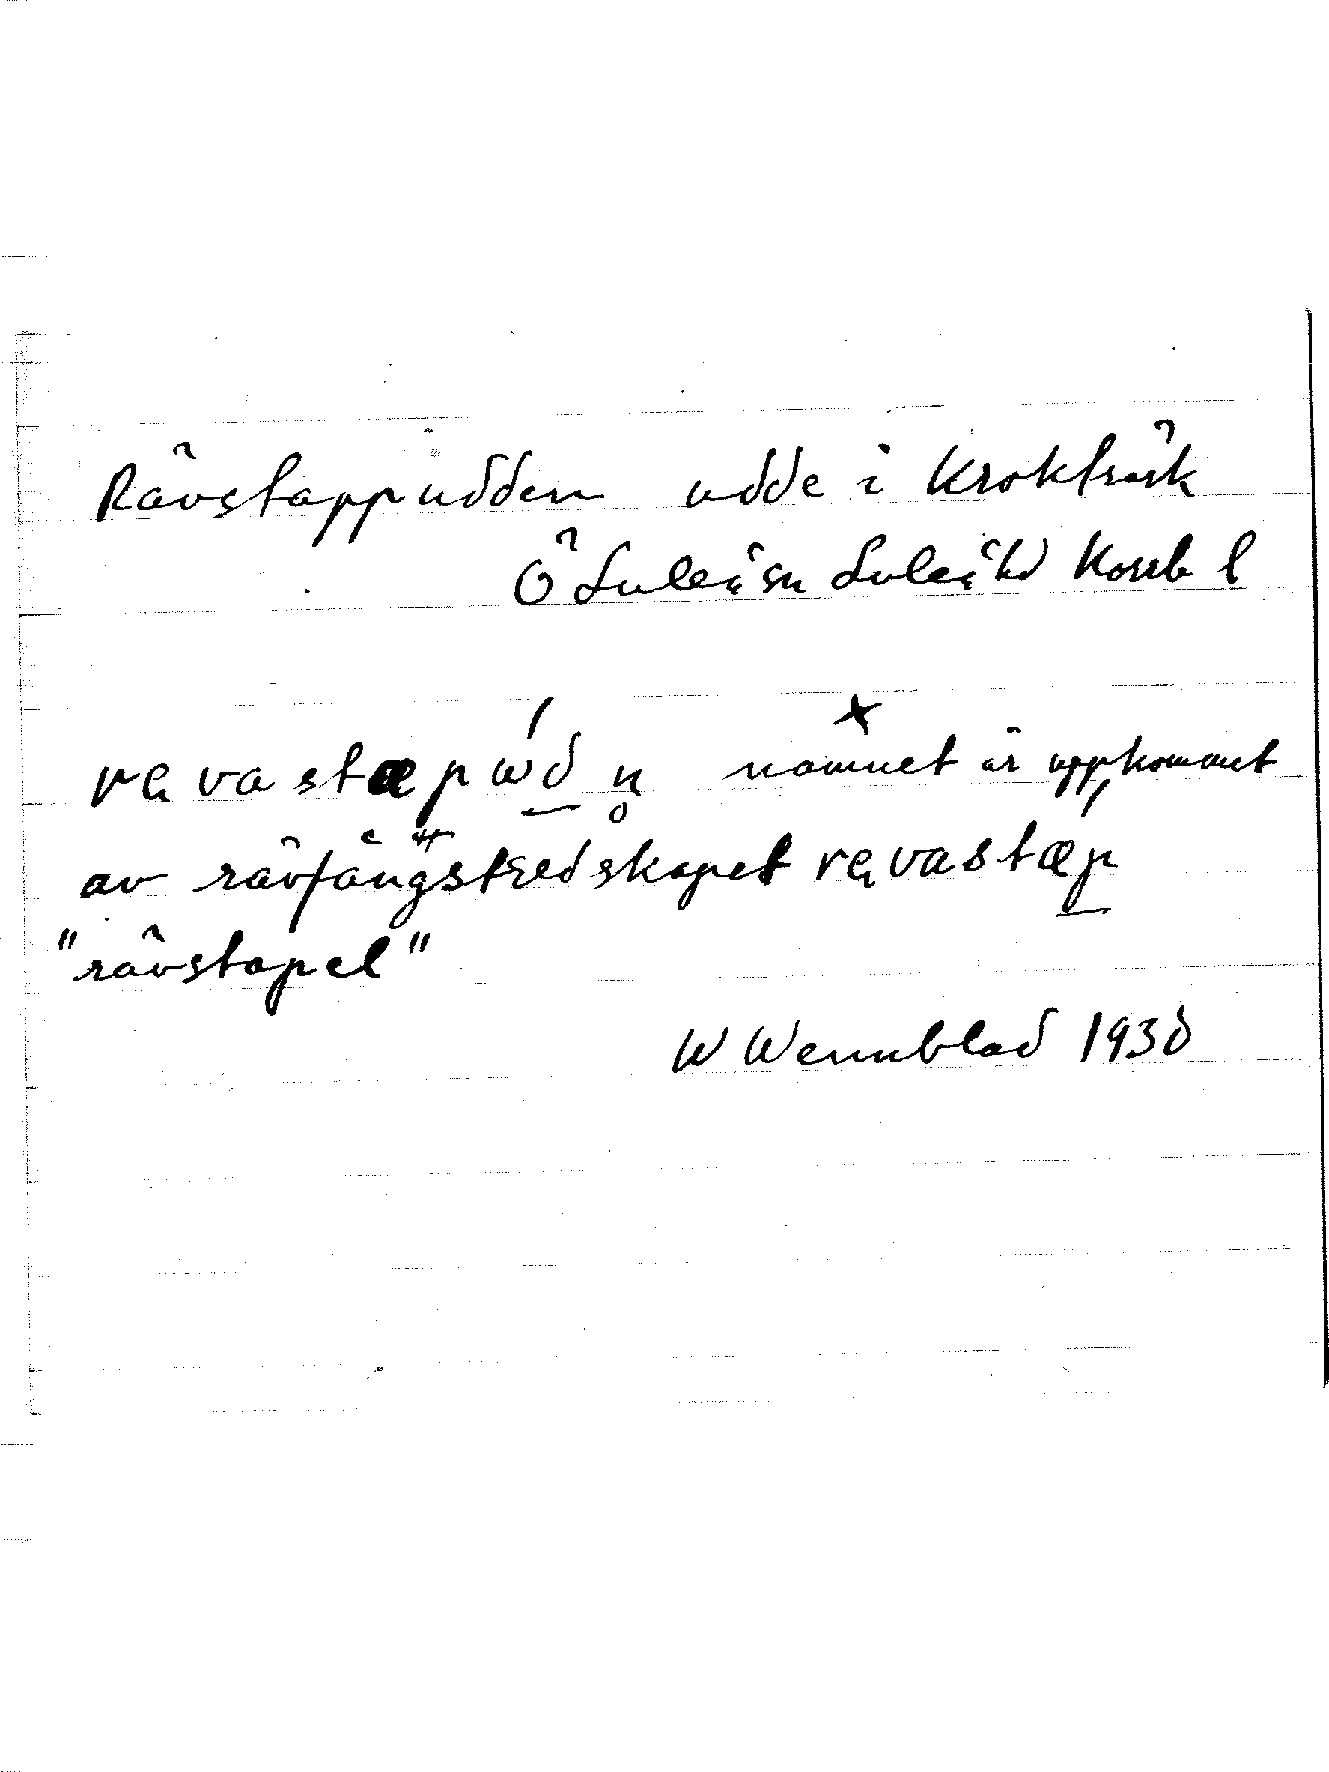 Rävstappudden udde i Kroktsäk
Ö Luleå sn Luleå hd Norrb l
rävastæpωdn namnet är uppkommet
av rävfångstredskapet rävastæp
"rävstapel"
W Wennblad 1938